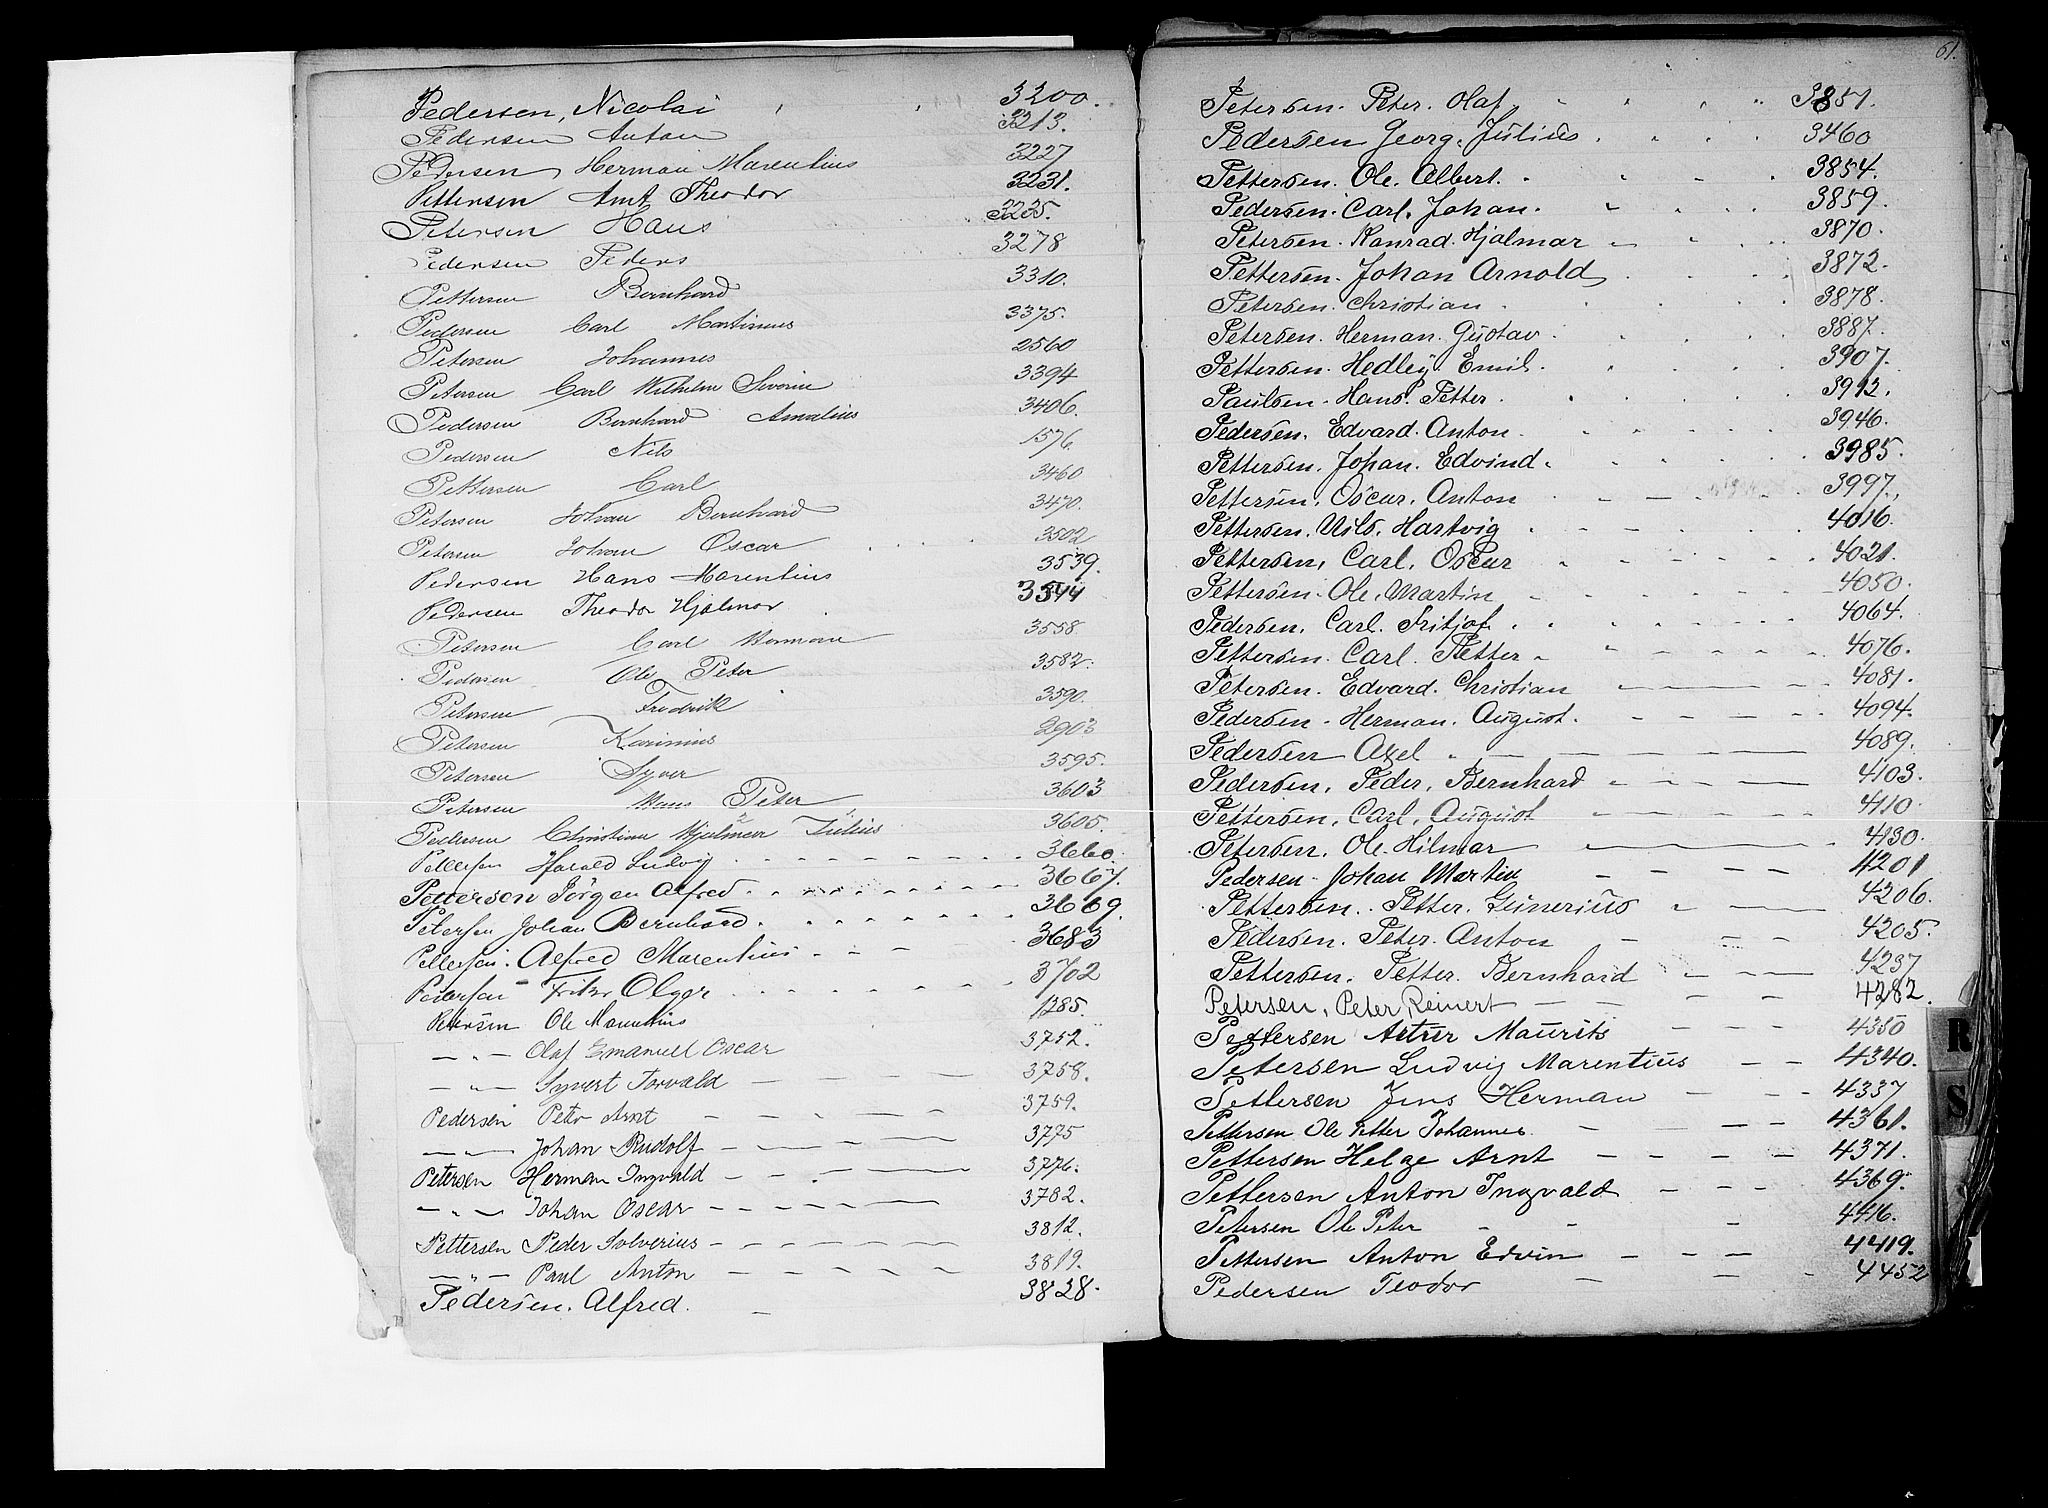 Pedersen, Nicolai 3200.
Pedersen Anton 3213.
Pedersen Herman Marentius 3227
Pettersen Arnt Theodor 3231.
Petersen Hans 3235.
Pedersen Peders 3278
Pettersen Bernhard 3310.
Pedersen Carl Martinius 3375.
Petersen Johannes 2560
Petersen Carl Wilhelm Severin 3394
Pedersen Bernhard Amalius 3406.
Pedersen Nils 1576.
Pettersen Carl 3460
Petersen Johan Bernhard 3470.
Petersen Johan Oscar 3502
Pedersen Hans Marentius 3539.
Pedersen Theodor Hjalmar 3544
Petersen Carl Herman 3558.
Pedersen Ole Peter 3582.
Petersen Fredrik 3590.
Petersen Karinius 2903
Petersen Syver 3595.
Petersen Hans Peter 3603
Pedersen Christian Hjalmar Julius 3605.
Pettersen Harald Ludvig 3660.
Pettersen Jörgen Alfred 3667.
Petersen Johan Bernhard 3669.
Pettersen. Alfred Marentius 3683
Pedersen Fritz Olger 3702
Petersen Ole Marentius 1285.
— " — Olaf Emanuel Oscar 3752.
— " — Syvert Torvald 3758.
Pedersen Petter Arnt 3759.
— " — Johan Rudolf 3775
Petersen Herman Ingvald 3776.
— " — Johan Oscar 3782.
Pettersen Peder Solverius 3812.
— " — Paul Anton 3819.
Pedersen. Alfred. 3828.
61.
Petersen. Peter. Olaf 3851.
Pedersen Georg. Julius 3460
Pettersen. Ole. Albert. 3854.
Pedersen. Carl. Johan. 3859.
Petersen. Konrad. Hjalmar 3870.
Pettersen. Johan Arnold 3872.
Petersen. Christian. 3878.
Petersen. Herman. Gustav. 3887.
Pettersen. Hedley. Emil. 3907.
Paulsen. Hans. Petter. 3912.
Pedersen. Edvard. Anton. 3946.
Pettersen. Johan. Edvind. 3985.
Pettersen. Oscar. Anton 3997.
Pettersen. Nils. Hartvig 4016.
Pettersen. Carl. Oscar 4021.
Pettersen. Ole. Martin 4050.
Pedersen. Carl. Fritjof. 4064.
Pettersen. Carl. Petter 4076.
Petersen. Edvard. Christian 4081.
Pedersen. Herman. August. 4094.
Pedersen Axel 4089.
Pedersen. Peder. Bernhard 4103.
Pettersen. Carl. August 4110.
Petersen. Ole. Hilmar 4130.
Pedersen. Johan Martin 4201
Pettersen. Petter. Gunerius 4206.
Pedersen. Peter. Anton 4205.
Pettersen. Petter. Bernhard 4237
Petersen, Peter, Reinert 4282.
Pettersen Artur Maurits 4330
Petersen Ludvig Marentius 4340.
Pettersen Jens Herman 4337
Pettersen Ole Petter Johannes. 4361.
Pettersen Helge Arnt 4371.
Pettersen Anton Ingvald 4369.
Petersen Ole Peter 4416.
Pettersen Anton Edvin 4419.
Pedersen Teodor 4452
R
S